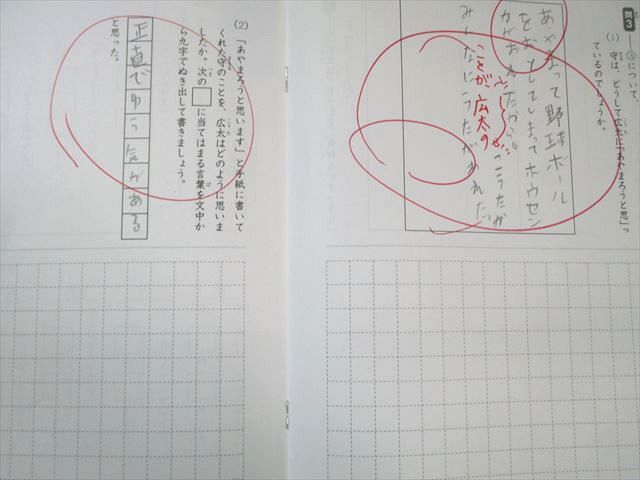 問3
(1) ③について、
守は、どうして広太に「あやまろうと思」っ
ているのでしょうか。
あやまって野球ボール
をおとしてしまってホウセン
カがおれたから。
ことが広太の
みんなにうたがわれた
(2) 「あやまろうと思います」と手紙に書いて
くれた守のことを、広太はどのように思いま
したか。次の□に当てはまる言葉を文中か
ら九字でぬき出して書きましょう。
正直でゆう気がある
と思った。